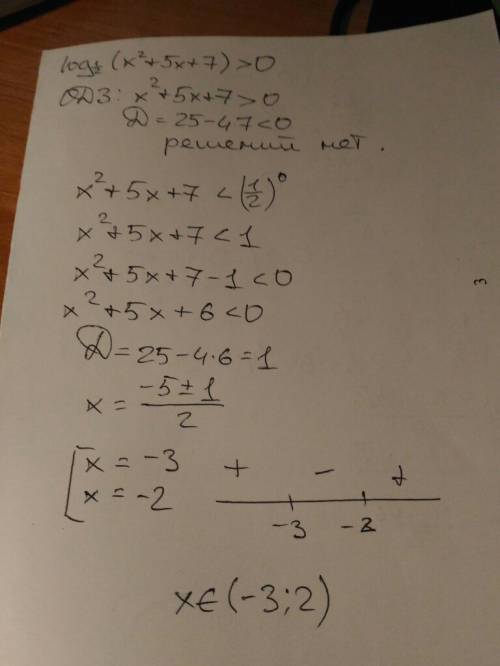 log½(x²+5x+7)>0
ОДЗ: x²+5x+7>0
D=25-47<0
решений нет.
x²+5x+7<(1/2)⁰
x²+5x+7<1
x²+5x+7-1<0
x²+5x+6<0
D=25-4·6=1
x=(-5±1)/2
[x=-3
x=-2
+ - +
-3 -2
x∈(-3;2)
3